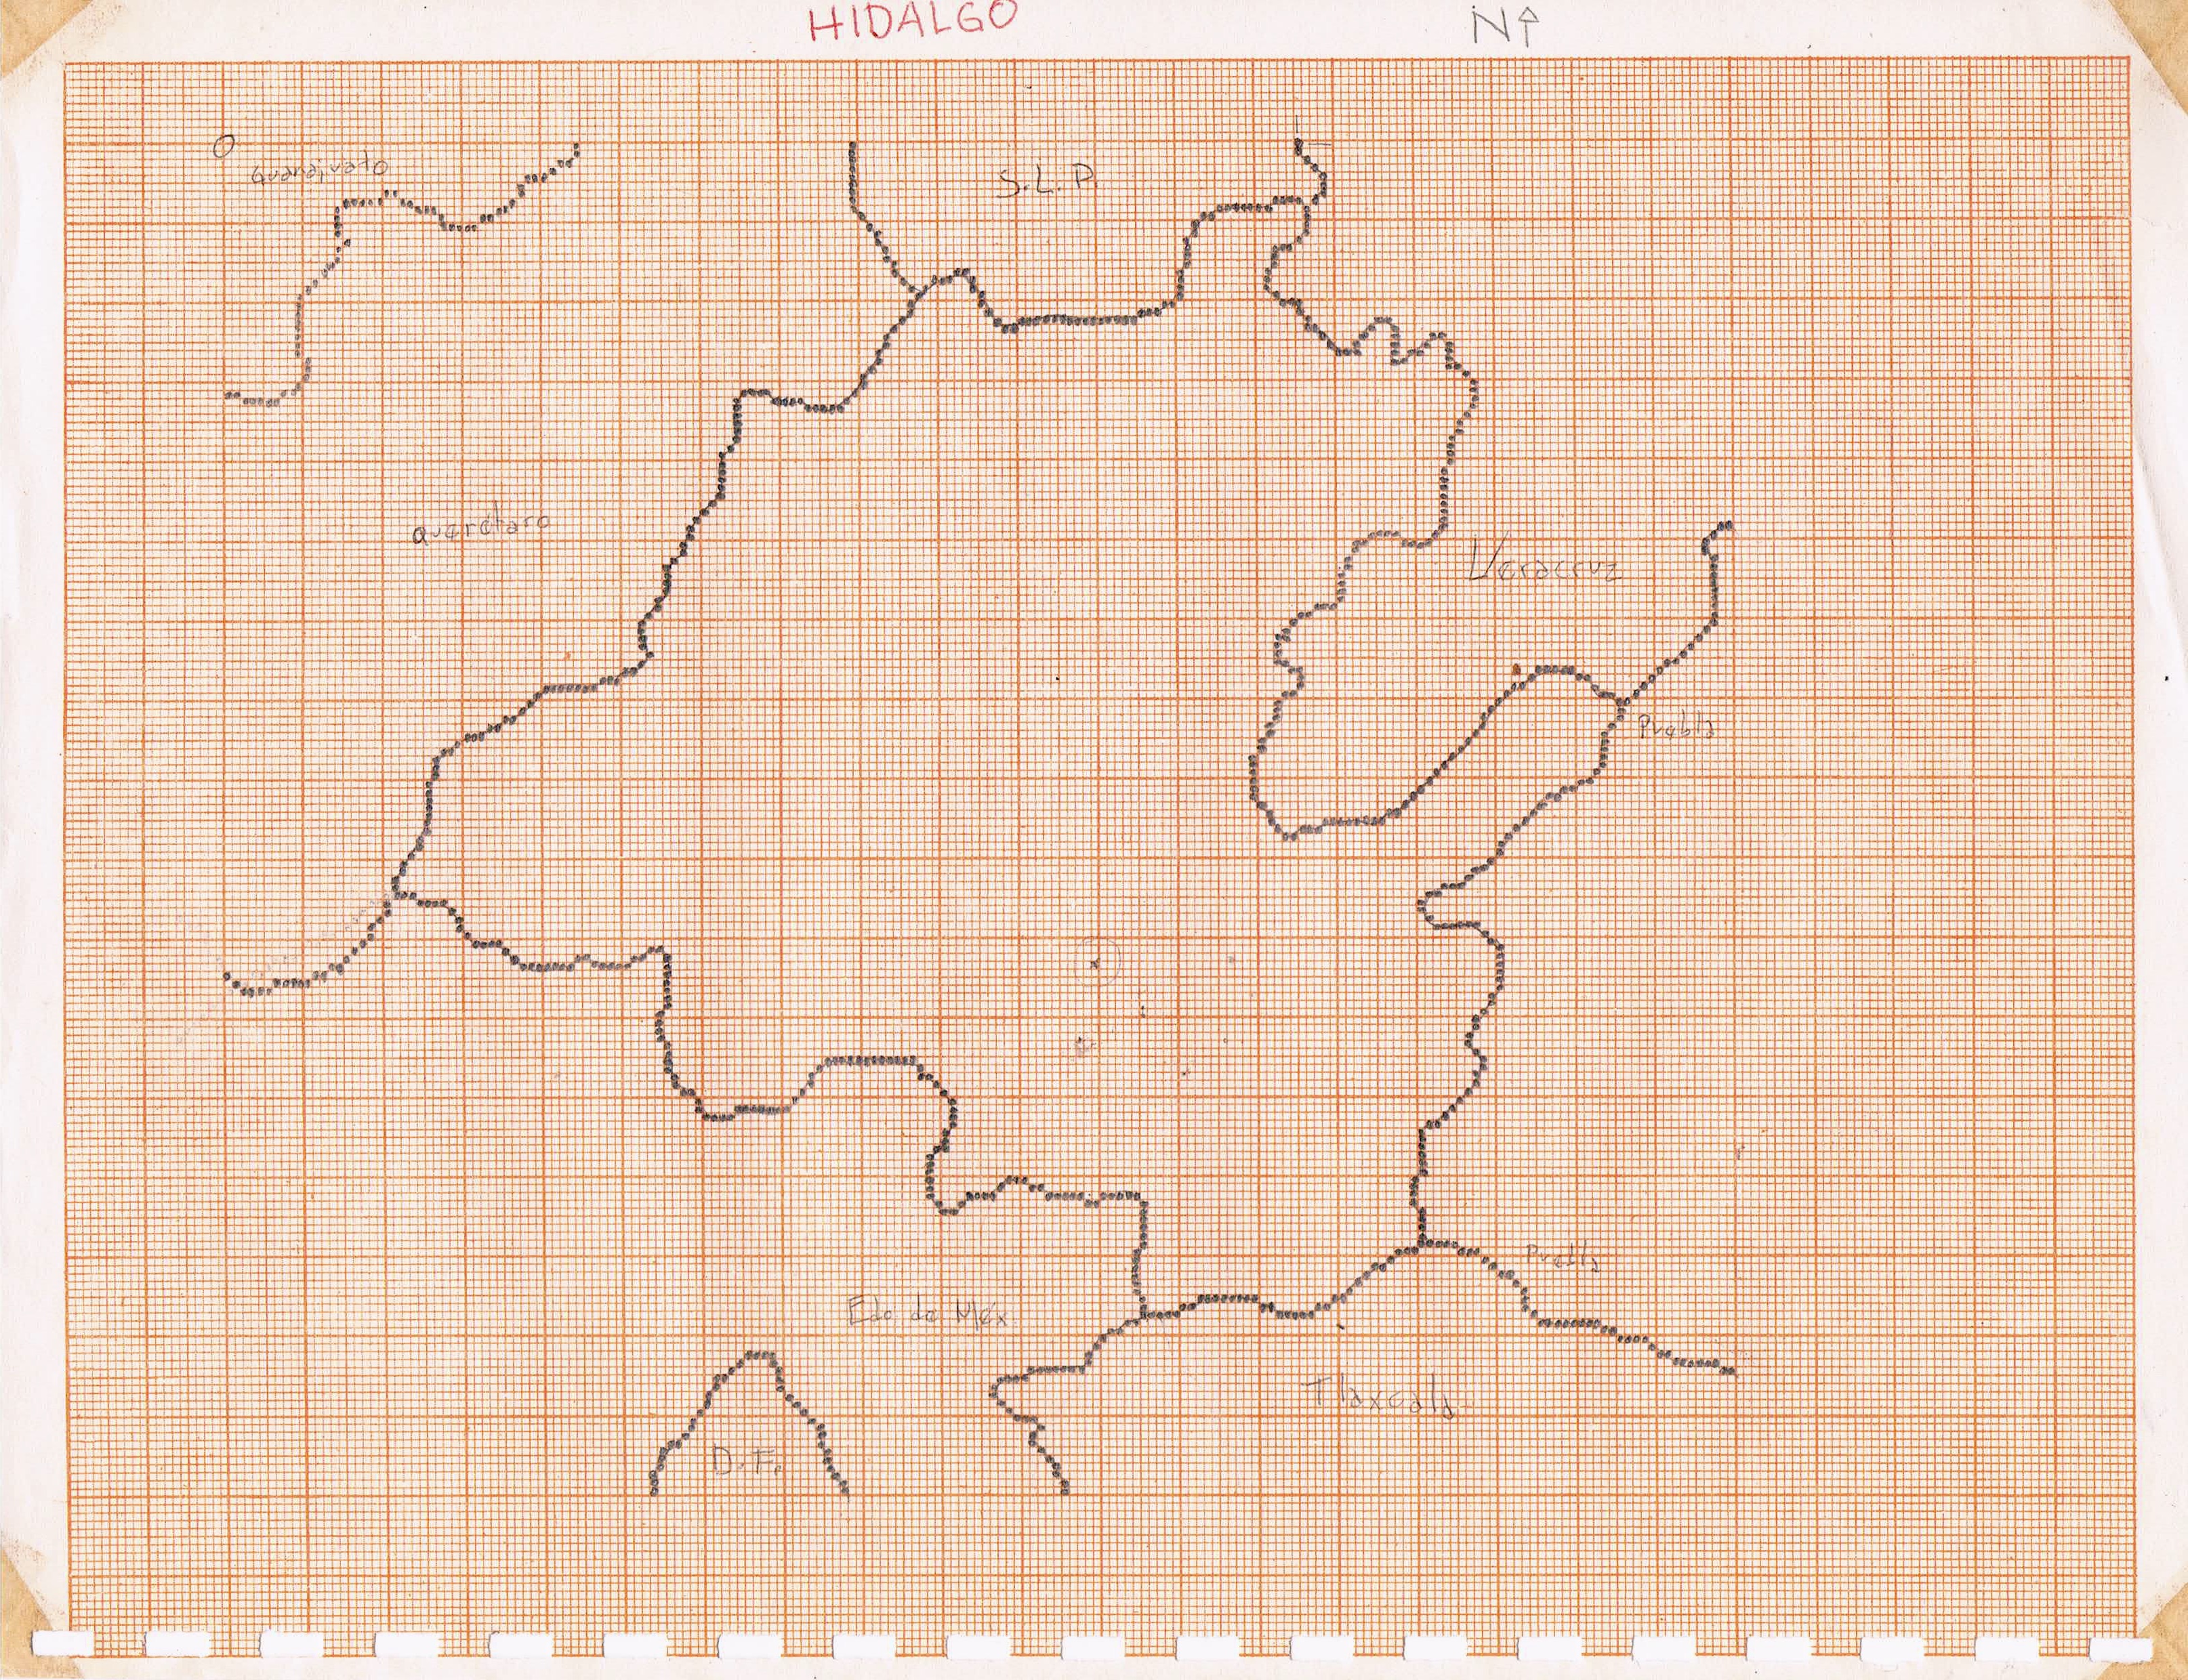 HIDALGO
N↑
Guanajuato
S.L.P.
Querétaro
Veracruz
Puebla
Puebla
Edo de Méx.
Tlaxcala
D.F.